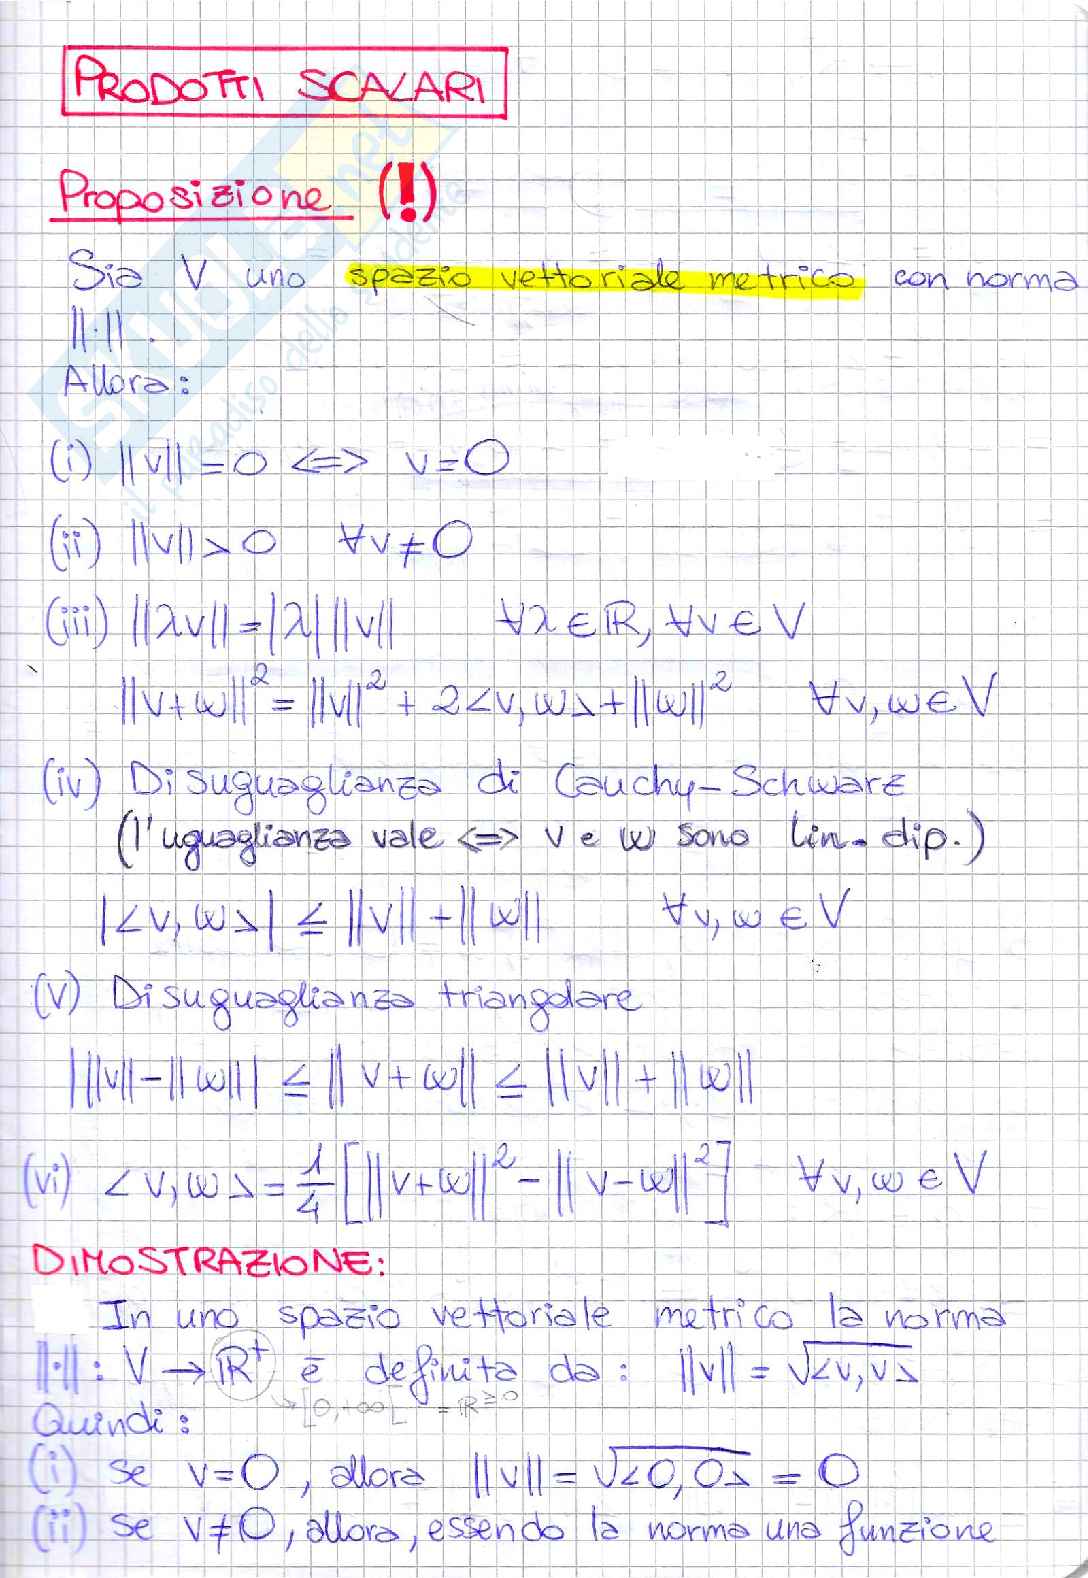 PRODOTTI SCALARI
Proposizione (!)
Sia V uno spazio vettoriale metrico con norma
||·|| .
Allora:
(i) ||v|| = 0 <=> v = 0
(ii) ||v|| > 0 ∀v ≠ 0
(iii) ||λv|| = |λ| ||v|| ∀λ ∈ ℝ, ∀v ∈ V
||v+w||² = ||v||² + 2<v,w> + ||w||² ∀v,w ∈ V
(iv) Disuguaglianza di Cauchy-Schwarz
(l'uguaglianza vale <=> v e w sono lin. dip.)
|<v,w>| ≤ ||v|| - ||w|| ∀v,w ∈ V
(v) Disuguaglianza triangolare
| ||v|| - ||w|| | ≤ ||v+w|| ≤ ||v|| + ||w||
(vi) <v,w> = 1/4 [ ||v+w||² - ||v-w||² ] ∀v,w ∈ V
DIMOSTRAZIONE:
In uno spazio vettoriale metrico la norma
||·|| : V → ℝ⁺ è definita da: ||v|| = √<v,v>
→ [0,+∞[ = ℝ≥0
Quindi:
(i) se v=0, allora ||v|| = √<0,0> = 0
(ii) se v≠0, allora, essendo la norma una funzione
SKUOLA.net
il paradiso dello studente